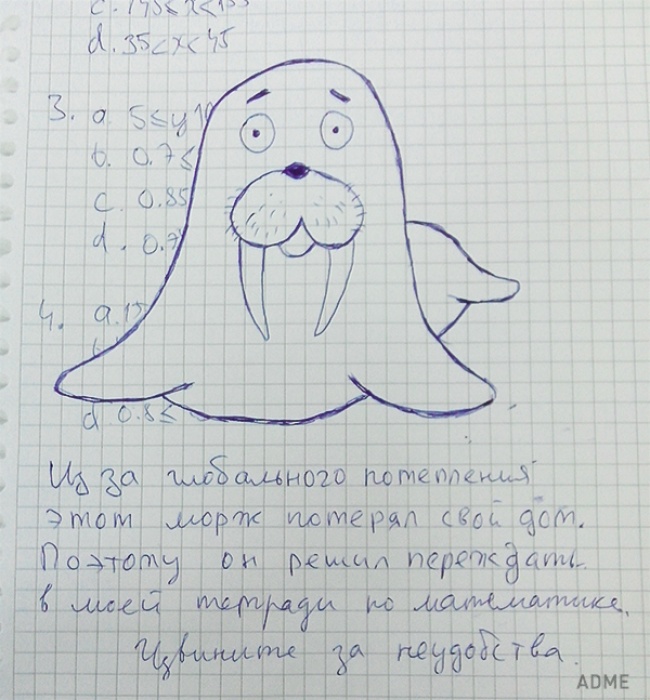 d. 35<x<45
3. a. 5≤y
b. 0.7≤
c. 0.85
d. 0.7
4. a. 15
d 0.8≤
Из за глобального потепления
этот морж потерял свой дом.
Поэтому он решил переждать
в моей тетради по математике.
Извините за неудобства.
ADME